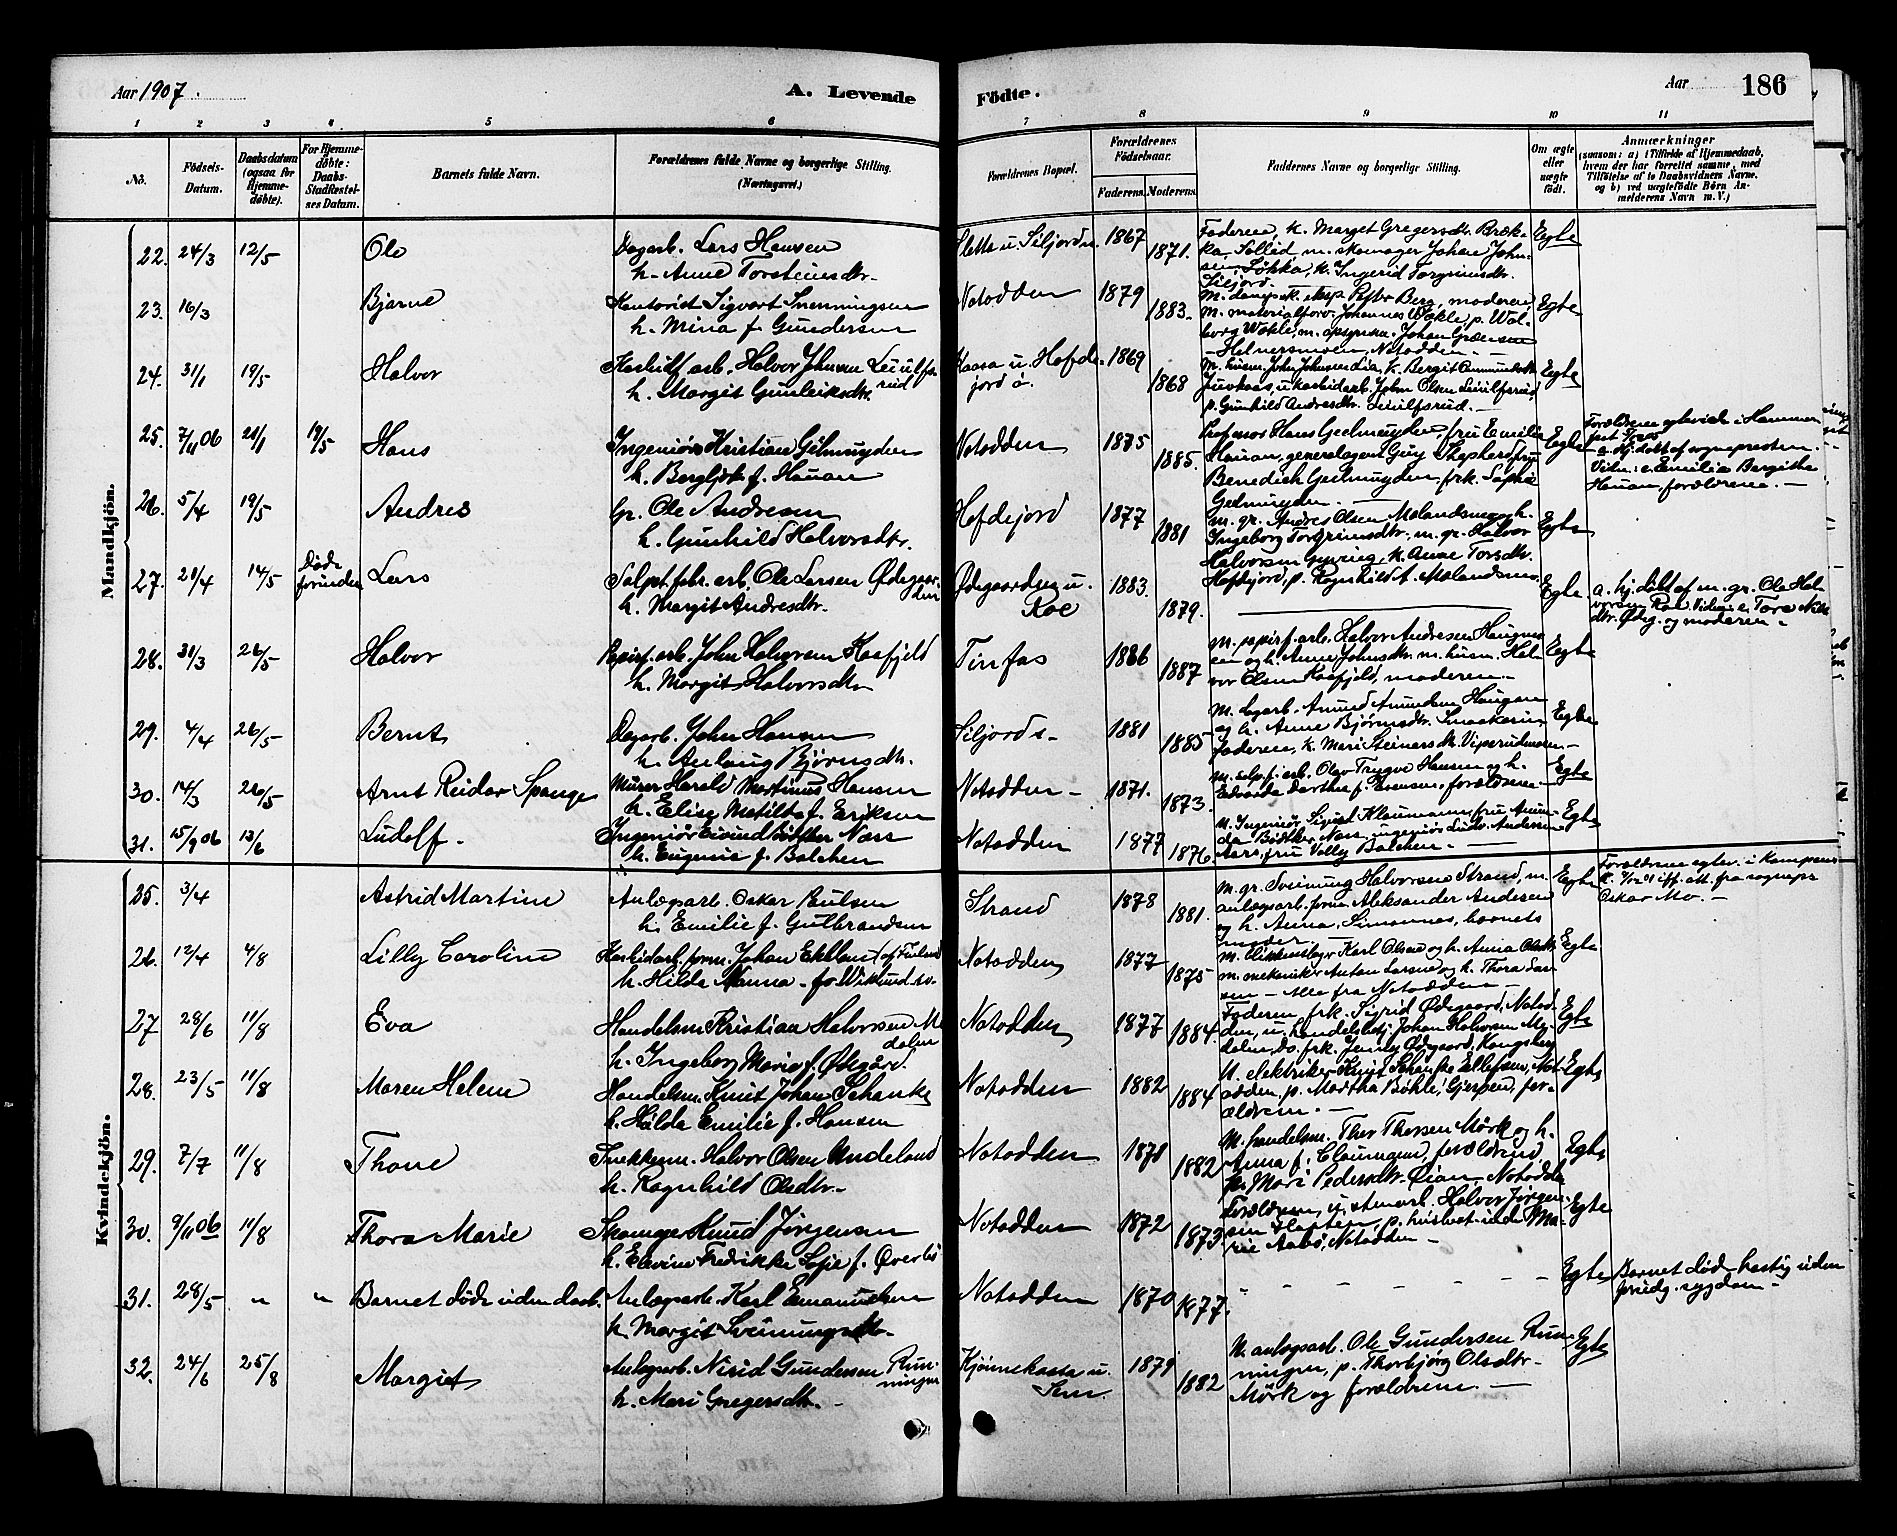 Aar 1907.
A. Levende
Födte.
Aar
186
1 2 3 4 5 6 7 8 9 10 11
No.
Födsels-
Datum.
Daabsdatum
(ogsaa for
Hjemme-
döbte).
For Hjemme-
döbte:
Daabs-
Stadfæstel-
ses Datum.
Barnets fulde Navn.
Forældrenes fulde Navne og borgerlige Stilling.
(Næringsvei.)
Forældrenes Bopæl.
Forældrenes
Födselsaar.
Faderens. Moderens.
Faddernes Navne og borgerlige Stilling.
Om ægte
eller
uægte
født.
Anmærkninger
(saasom: a) i Tilfælde af Hjemmedaab,
hvem der har forrettet samme, med
Tilföielse af to Daabsvidners Navne,
og b) ved uægtefödte Börn An-
melderens Navn m. V.)
Mandkjön.
22. 24/3 12/5 Ole
Dagarb. Lars Hansen
h. Anne Torsteinsdtr.
Sletta u. Siljords. 1867 1871.
Faderen, k. Marget Gregersdtr. Bræk-
ka, m. skomager Johan John-
sen Løkka, k. Ingerid Torgrimsdtr.
Siljord.
Egte
23. 16/3 Bjarne
Kontorist Sigvart Svenningsen
h. Mina f. Gundersen
Notodden 1879 1883.
Berg, moderen
m. materialforv. Johannes Wøkle, p. Wal-
borg Wøkle, m. Johan
Helnersmoen, Notodden. —
Egte
24. 31/1 19/5 Halvor
Karbidf. arb. Halvor Johnsen Leiulfs-
rud
h. Margit Gunleiksdtr.
Kaasa u. Hefde-
jord ø. 1869 1868
M. husm. John Johnsen Lia, k. Bergit
Juvkaas, u. karbidarb. John Olsen Leiulfsrud,
p. Gunhild Andresdtr. Leiulfsrud. —
Egte
25. 7/11 06 21/1 19/5 Hans
Ingeniør Kristian Gelmuyden
h. Bergljot f. Hauan
Notodden 1875 1885.
Professor Hans Geelmuyden, fru Emilie
Hauan, generalagent Guy Shepherd, fru
Benedicte Geelmuyden, frk. Sophie
Geelmuyden. —
Egte
Forældrene egteviede i Hammer-
a. Hj.døbt af sognepresten.
Vidn.: Emilie Bergithe
Hauan, forældrene. —
26. 5/4 19/5 Andres
Gr. Ole Andresen
h. Gunhild Halvorsdtr.
Hefdejord 1877 1881
m. gr. Andres Olsen Mælandsmo og h.
Ingeborg Torgrimsdtr., m. gr. Halvor
Halvorsen, k. Anne Torsdtr.
Hefdejord, p. Ragnhild A. Mælandsmo.
Egte
27. 21/4 14/5 Døde
forinden Lars
Salpet.fabr. arb. Ole Larsen Ødegaar-
den
h. Margit Andresdtr.
Ødegaarden u.
Roe 1883. 1879.
Egte.
a. hj.døbt af m. gr. Ole Hal-
vorsen Roe. Vidn.: Tore
dtr. Ødeg. og moderen. —
28. 31/3 26/5 Halvor
Papirf. arb. John Halvorsen Kaasfjeld
h. Margit Halvorsdtr.
Tinfos 1886 1887
M. papirf. arb. Halvor Andresen Haugmo-
en og h. Anne Johnsdtr., m. husm. Hal-
vor Olsen Kaasfjeld, moderen. —
Egte
29. 4/4 26/5 Bernt
Dagarb. John Hansen
h. Anlaug Bjørnsdtr.
Siljords- 1881 1885
M. dagarb. Amund Amundsen Haugen
og h. Anne Bjørnsdtr.
faderen, k. Mari Steinarsdtr. Viperudmoen. —
Egte
30. 14/3 26/5 Arnt Reidar Spange
Murer Harald Martinus Hansen
h. Elise Matilde f. Eriksen
Notodden - 1871. 1873.
M. salp.f. arb. Olav Trygve Hansen og h.
Edvarda Dorthea f. Evensen, forældrene
Egte
31. 15/9 06 13/6 Ludolf.
Ingeniør Eivind Bødtker Næss
h. Eugenie f. Balchen
Notodden 1877 1876.
M. Ingeniør Sigurd Kloumann, fru
Bødtker Næss, ingeniør Ludv. Andersen
Aars, fru Velly Balchen. —
Egte
Kvindekjön.
25. 3/4 Astrid Martine
Anlægsarb. Oskar Paulsen
h. Emilie f. Gulbrandsen
Strand 1878 1881.
M. gr. Sveinung Halvorsen Strand, m.
anlægsarb. form. Aleksander Andersen
og h. Anna, Simonnes, barnets
moder. —
Egte
Forældrene egtev. i Kampens
K. iflg. att. fra sognepr
Oskar Mo. —
26. 12/4 4/8 Lilly Caroline
Karbidarb. form. Johan Eklund (af Finland
h. Hilda Nanna f. Wiklund do.
Notodden 1877 1875
M. blikkenslager Karl Olsen og h. Anna Olsen,
m. mekaniker Anton Larsen og h. Thora Lar-
sen — Alle fra Notodden —
Egte
27 28/6 11/8 Eva
Handelsm. Kristian Halvorsen Me-
dalen
h. Ingeborg Marie f. Ødegård.
Notodden 1877 1884.
Faderen, frk. Sigrid Ødegaard, Notod-
den, u. handelsbetj. Johan Halvorsen Me-
dalen, Do. frk. Jenny Ødegaard, Kongsberg
Egte
28. 23/5 11/8 Maren Helene
Handelsm. Knut Johan Schanke
h. Hilda Emilie f. Hansen
Notodden 1882 1884
U. elektriker Knut Schanke Ellefsen, Not-
odden, p. Martha Bøhle, Gjerpen, for-
ældrene. —
Egte
29. 7/7 11/8 Thone
Snekkerm. Halvor Olsen Undeland
h. Ragnhild Olsdtr.
Notodden 1871 1882
M. handelsm. Thor Thorsen Mörk og h.
Anna f. Cloumann, forældrene,
p. Mari Pedersdtr. Øian, Notodden
Egte
30. 9/11 06 11/8 Thora Marie
Skomager Knud Jörgensen
h. Elevine Fredrikke Sofie f. Øverbö
Notodden 1872 1873.
Forældrene, u. Halvor Jörgen-
sen, p. Ma-
rie Aabö, Notodden —
Egte
31. 28/5 " " Barnet döde uden daab.
Anlægsarb. Karl Emanuelsen
h. Margit Sveinungsdtr.
Notodden 1870 1877.
Egte
Barnet døde hastig uden
foreg. sygdom. —
32. 24/6 25/8 Margit
Anlægsarb. Nirid Gundersen Run-
ningen
h. Mari Gregersdtr. —
Kjönnekaasa u.
Sem 1879 1882
M. anlægsarb. Ole Gundersen Run-
ningen, p. Thorbjörg Olsdtr.
Mörk og forældrene. —
Egte